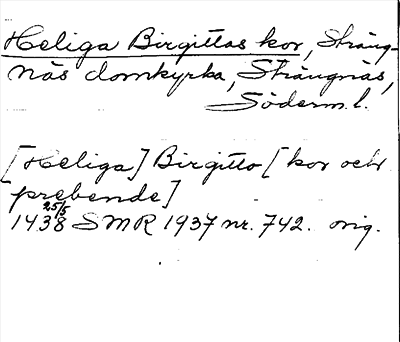 Heliga Birgittas kor, Sträng-
näs domkyrka, Strängnäs,
Söderm. l.
[Heliga] Birgitto [kor och
prebende]
1438 25/5 SMR 1937 nr. 742. orig.